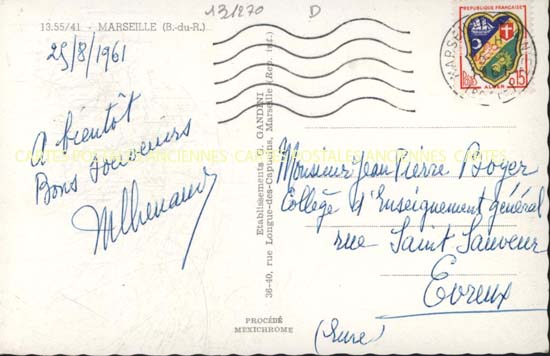 13.55/41 - MARSEILLE (B.-du-R.)
13/270
D
25/8/1961
A bientôt
Bons souvenirs
Etablissements G. GANDINI
36-40, rue Longue-des-Capucins, Marseille (Rep. inf.)
PROCÉDÉ
MEXICHROME
REPUBLIQUE FRANÇAISE
0,15
ALGER
Monsieur Jean Pierre Boyer
Collège d'Enseignement général
rue Saint Sauveur
Evreux
(Eure)
CARTES POSTALES ANCIENNES CARTES POSTALES ANCIENNES CARTES